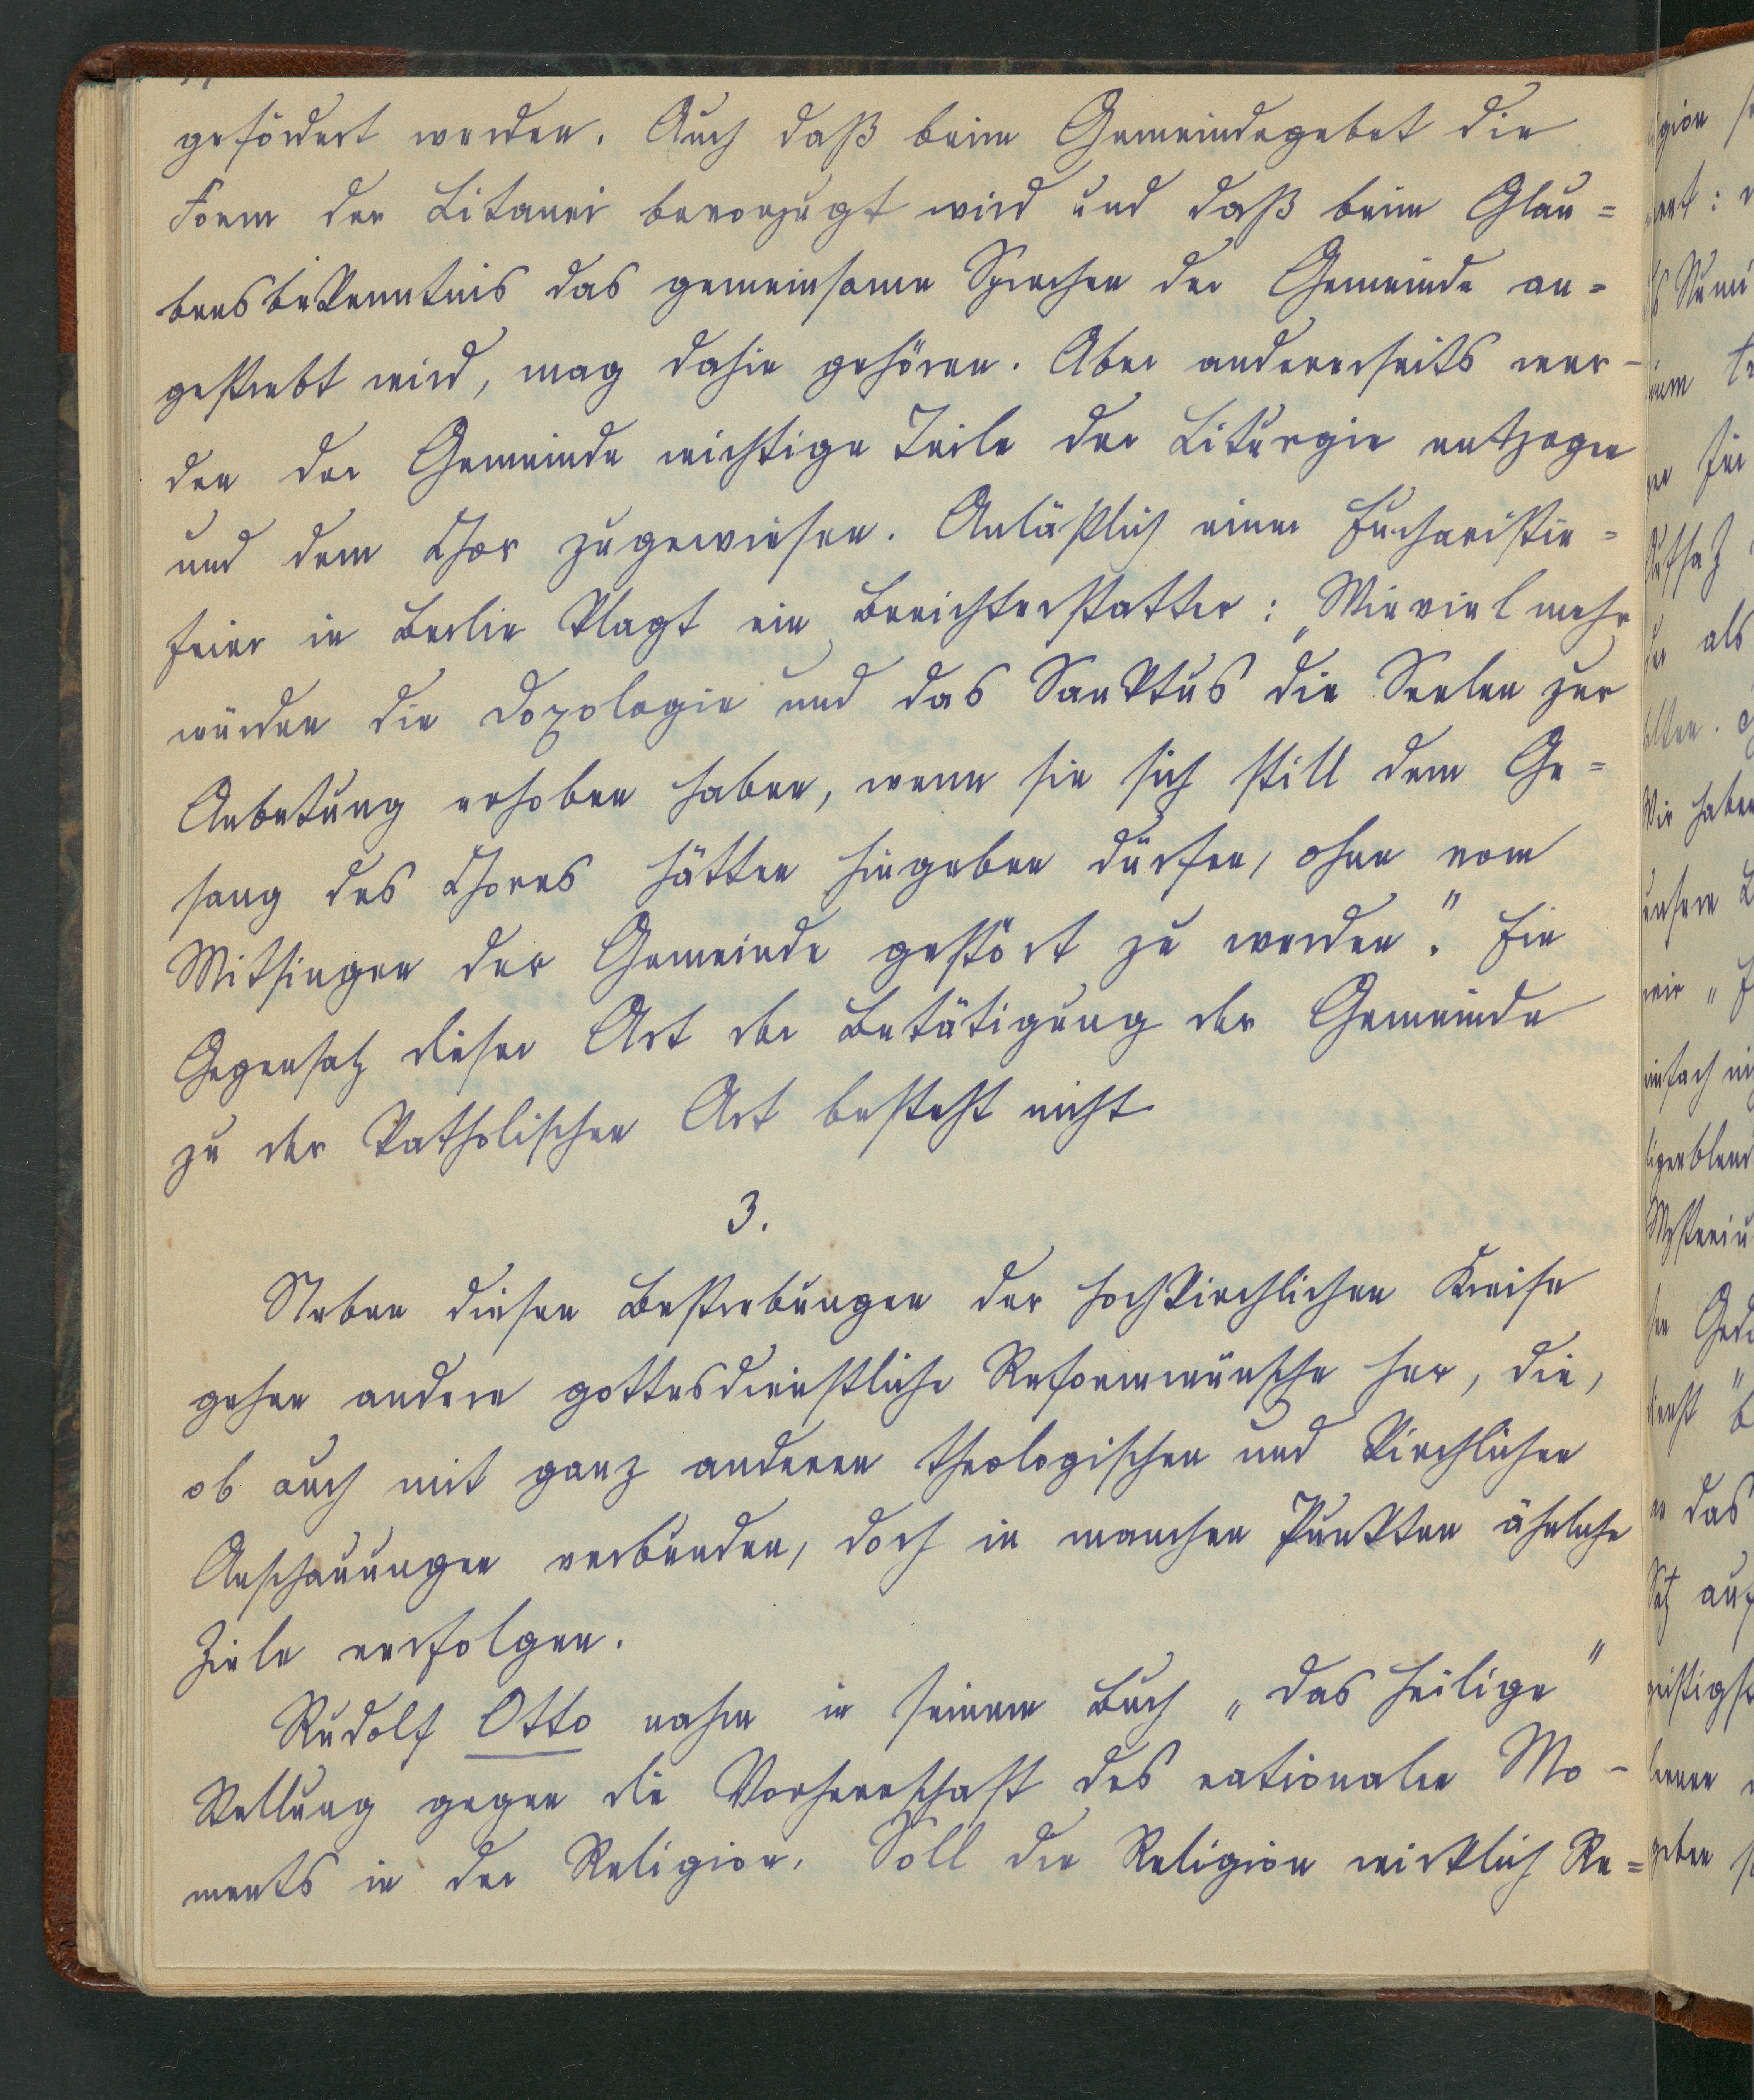 gefördert werden. Auch daß beim Gemeindegebet die
Form der Litanei bevorzugt wird und daß beim Glau=
bensbekenntnis das gemeinsame Sprechen der Gemeinde an=
gestrebt wird, mag dahin gehören. Aber andererseits wer-
den der Gemeinde wichtige Teile der Liturgie entzogen
und dem Chor zugewiesen. Anläßlich einer Eucharistie=
feier in Berlin klagt ein Berichterstatter: „Wieviel mehr
würden die Doxologie und das Sanktus die Seelen zur
Anbetung erhoben haben, wenn sie sich still dem Ge=
sang des Chores hätten hingeben dürfen, ohne vom
Mitsingen der Gemeinde gestört zu werden." Ein
Gegensatz dieser Art der Betätigung der Gemeinde
zu der katholischen Art besteht nicht
3.
Neben diesen Bestrebungen der hochkirchlichen Kreise
gehen andere gottesdienstliche Reformwünsche her, die,
ob auch mit ganz anderen theologischen und kirchlichen
Anschauungen verbunden, doch in manchen Punkten ähnliche
Ziele verfolgen.
Rudolf Otto nahm in seinem Buch „Das Heilige"
Stellung gegen die Vorherrschaft des rationalen Mo-
ments in der Religion. Soll die Religion wirklich Re=